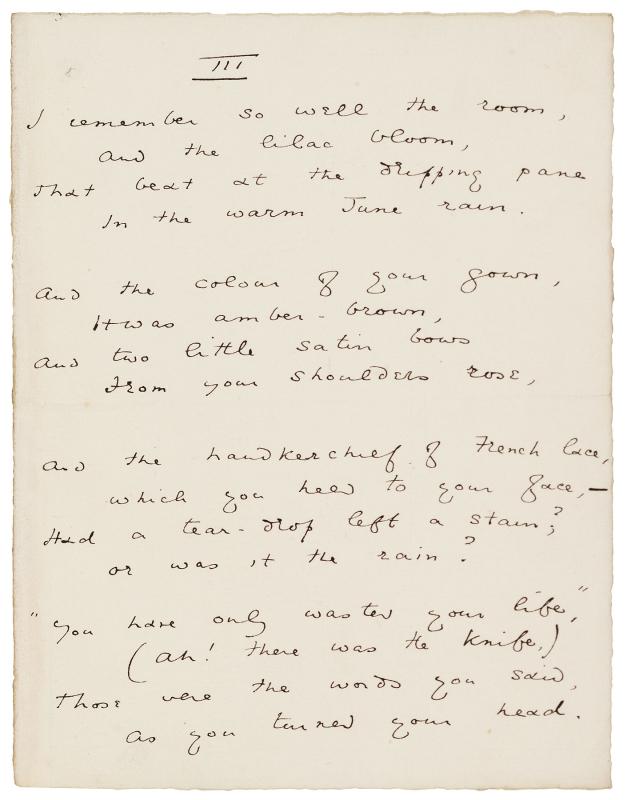 III
I remember so well the room,
And the lilac bloom,
That beat at the dripping pane
In the warm June rain.
And the colour of your gown,
It was amber-brown,
And two little satin bows
From your shoulders rose,
And the handkerchief of French lace,
which you held to your face,—
Had a tear-drop left a stain?
or was it the rain?
"You have only wasted your life,"
(Ah! there was the knife,)
Those were the words you said,
As you turned your head.